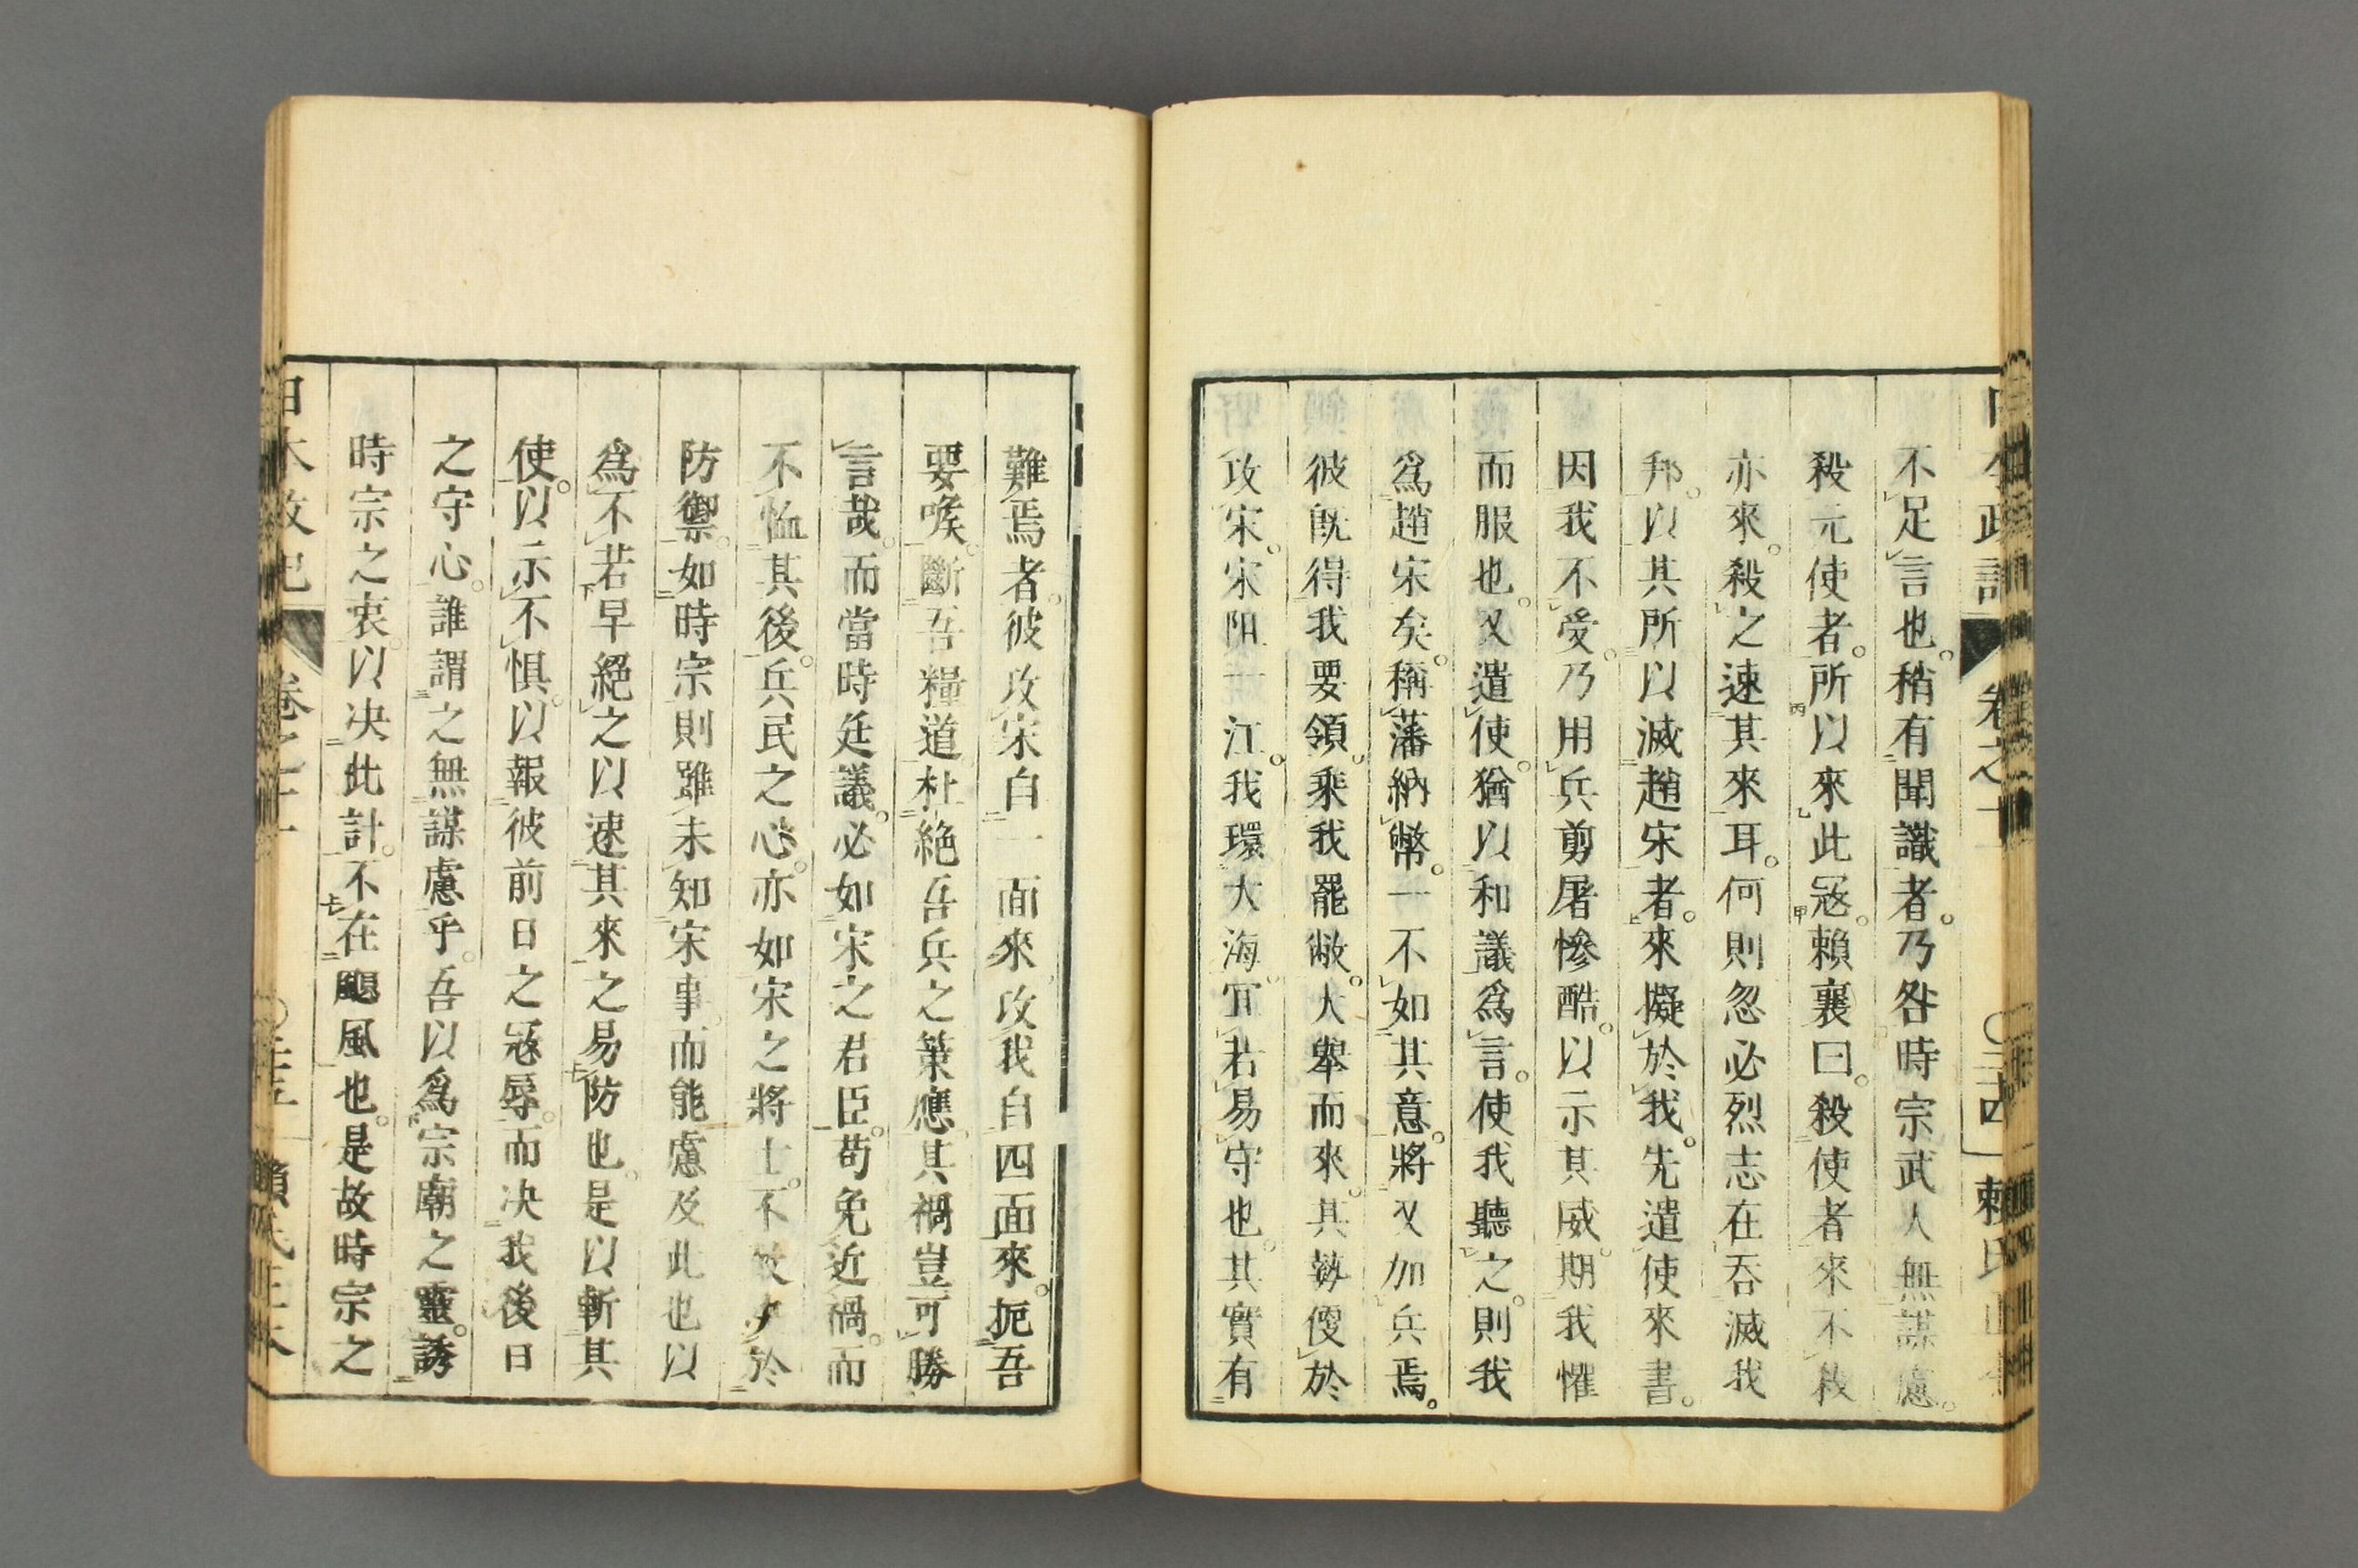 不足言也。稍有聞識者。乃咎時宗武人無謀慮。
殺元使者。所以來此寇。賴襄曰。殺使者來不殺
亦來。殺之速其來耳。何則忽必烈志在吞滅我
邦。以其所以滅趙宋者。來擬於我。先遣使來書。
因我不受。乃用兵剪屠慘酷。以示其威。期我懼
而服也。又遣使。猶以和議爲言。使我聽之。則我
爲趙宋矣。稱藩納幣。一不如其意。將又加兵焉。
彼既得我要領。乘我罷敝。大舉而來。其勢傻於
攻宋。宋阻一江。我環大海。冝若易守也。其實有
難焉者。彼攻宋自一面來。攻我自四面來。扼吾
要喉。斷吾糧道。杜絕吾兵之策應。其禍豈可勝
言哉。而當時廷議。必如宋之君臣。苟免近禍。而
不恤其後。兵民之心。亦如宋之將士。不致力於
防禦。如時宗則雖未知宋事。而能慮及此也。以
爲不若早絕之以速其來之易防也。是以斬其
使。以示不惧。以報彼前日之寇辱。而决我後日
之守心。誰謂之無謀慮乎。吾以爲宗廟之靈。誘
時宗之衷。以决此計。不在颶風也。是故時宗之